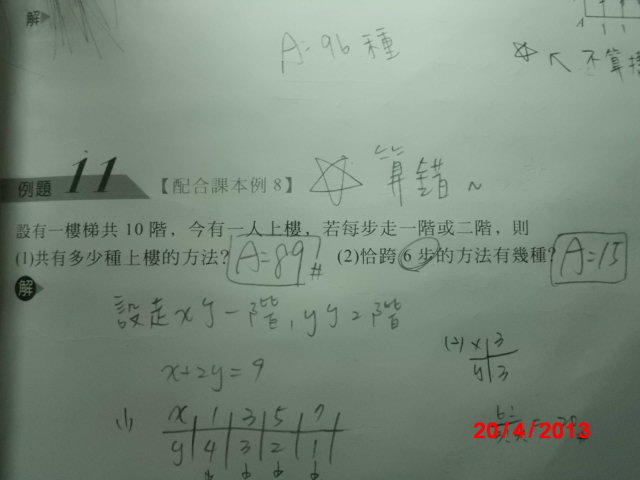 解
A=96 種
☆ ↖ 不算
例題 11 【配合課本例 8】 ☆ 算錯~
設有一樓梯共 10 階，今有一人上樓，若每步走一階或二階，則
(1)共有多少種上樓的方法? A=89 # (2)恰跨 6 步的方法有幾種? A=15
解
設走 x 步一階, y 步 2階
x+2y=9
(2) x 3
y 3
(1) x 1 3 5 7
y 4 3 2 1
20/4/2013